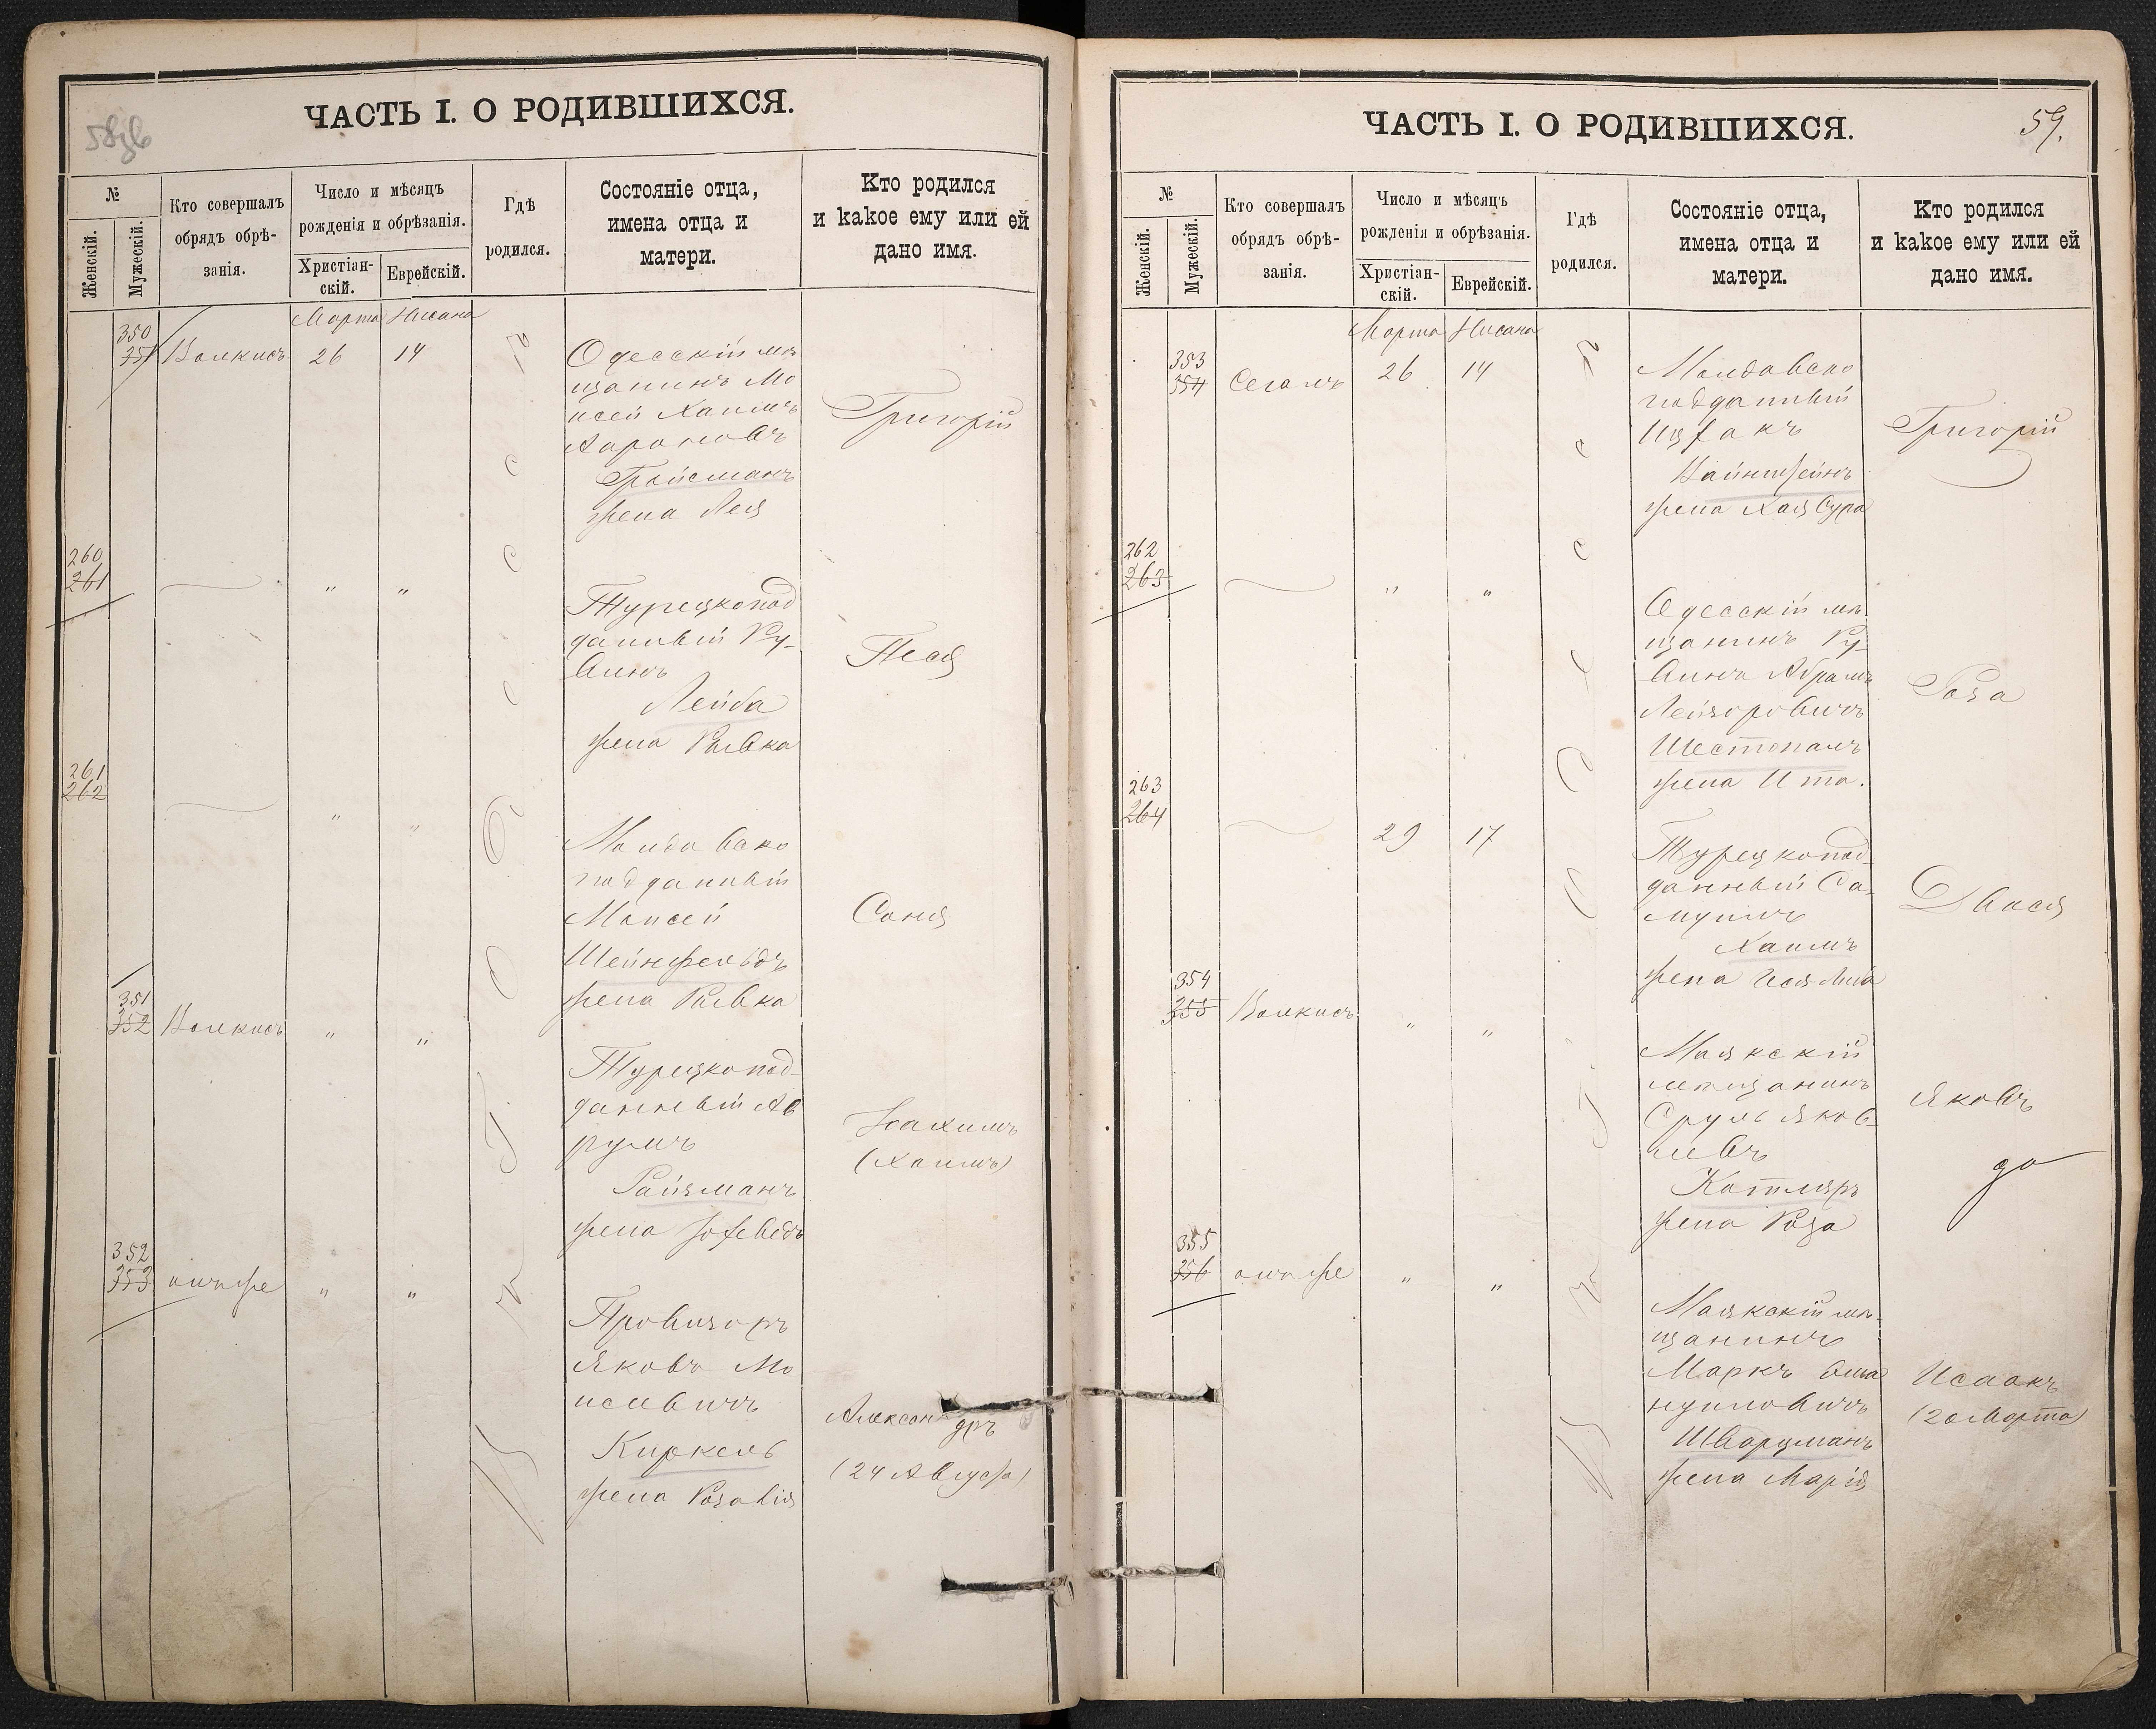 58об
ЧАСТЬ I. О РОДИВШИХСЯ.
№
Женскій.
Мужескій.
Кто совершалъ
обрядъ обрѣ-
занія.
Число и мѣсяцъ
рожденія и обрѣзанія.
Христіан-
скій.
Еврейскій.
Гдѣ
родился.
Состояніе отца,
имена отца и
матери.
Кто родился
и какое ему или ей
дано имя.
Марта Нисана
350
351 Волкисъ 26 14
Одесскій мѣ
щанинъ Мо
исей Хаимъ
Ароновъ
Гройсманъ
жена Лея
Григорій
260
261 " "
Турецкопод
данный Ру-
винъ
Лейба
жена Ривка
Песя
261
262 " "
Молдавско
подданный
Моисей
Шейнфельдъ
жена Ривка
Соня
351
352 Волкисъ " "
Турецкопод-
данный Ав
румъ
Райзманъ
жена Іохеведъ
Нахимъ
(Хаимъ)
352
353 онъ же " "
Провизоръ
Яковъ Мо
исеевичъ
Киркель
жена Розалія
Александръ
(24 Августа)
Въ г. Одессѣ
59.
ЧАСТЬ I. О РОДИВШИХСЯ.
№
Женскій.
Мужескій.
Кто совершалъ
обрядъ обрѣ-
занія.
Число и мѣсяцъ
рожденія и обрѣзанія.
Христіан-
скій.
Еврейскій.
Гдѣ
родился.
Состояніе отца,
имена отца и
матери.
Кто родился
и какое ему или ей
дано имя.
Марта Нисана
353
354 Сегалъ 26 14
Молдавско
подданный
Ицхакъ
Вайнштейнъ
жена Хая Сура
Григорій
262
263 " "
Одесскій мѣ-
щанинъ Ру-
винъ Абрамъ
Лейзоровичъ
Шестопалъ
жена Ита.
Роза
263
264 29 17
Турецкопод-
данный Са-
муилъ
Хаимъ
жена
Двося
354
355 Волкисъ " "
Маякскій
мѣщанинъ
Сруль Яков-
левъ
Котляръ
жена Роза
Яковъ
355
356 онъ же " "
Маякскій мѣ-
щанинъ
Маркъ Эма
нуиловичъ
Шварцманъ
жена Марія
Исаакъ
(20 Марта)
Въ г. Одессѣ